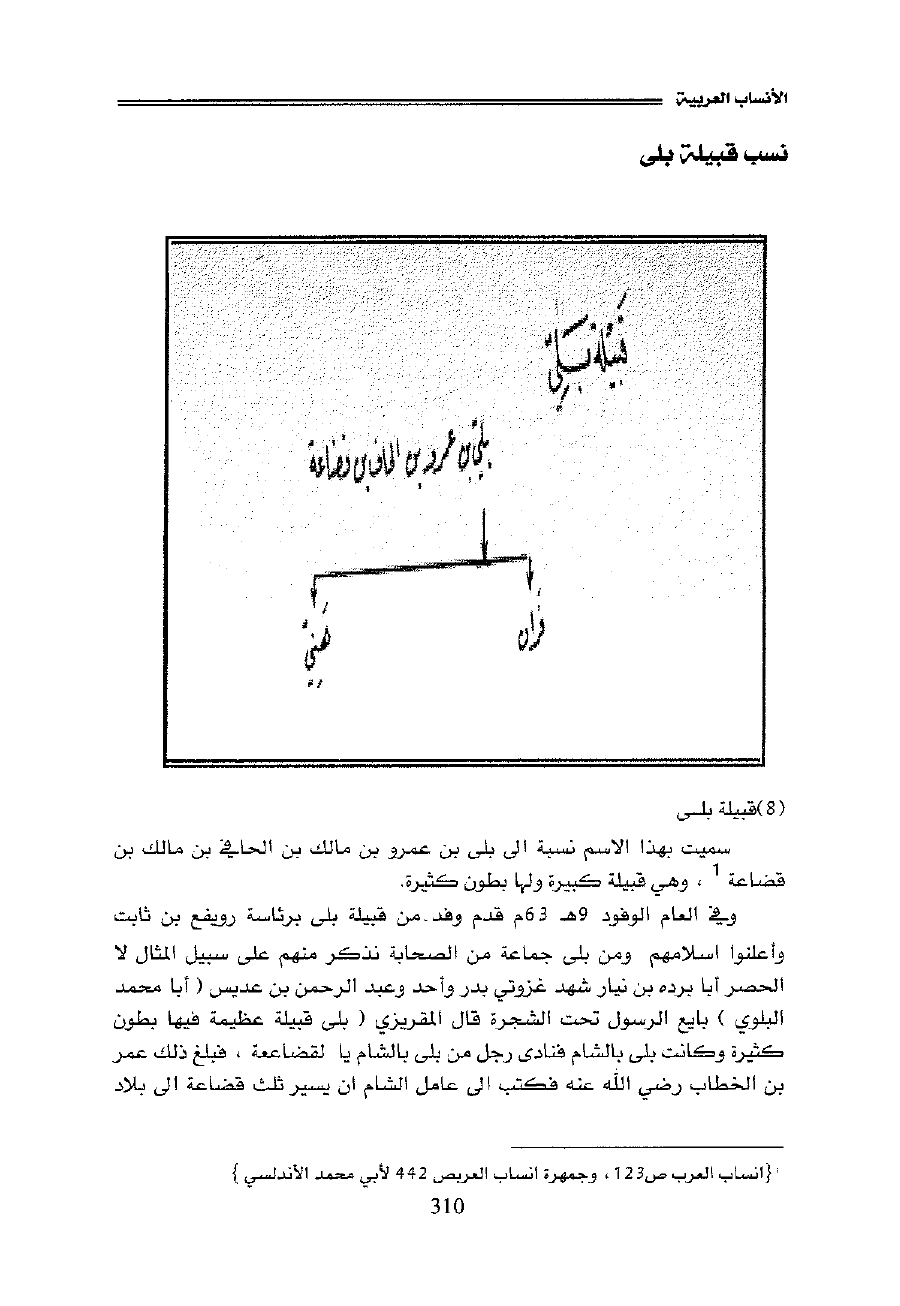 الأنساب العربية
نسب قبيلة بلى
قَبيْلة بَلِيّ
بليّ بن عمرو بن الحاف بن قضاعة
فَران
هَنِيّ
(8)قبيلة بلـــى
سميت بهذا الاسم نسبة الى بلى بن عمرو بن مالك بن الحافي بن مالك بن
قضاعة 1 ، وهي قبيلة كبيرة ولها بطون كثيرة.
وفي العام الوفود 9هـ 63م قدم وفد.من قبيلة بلى برئاسة رويفع بن ثابت
وأعلنوا اسلامهم ومن بلى جماعة من الصحابة نذكر منهم على سبيل المثال لا
الحصر أبا برده بن نيار شهد غزوتي بدر وأحد وعبد الرحمن بن عديس ( أبا محمد
البلوي ) بايع الرسول تحت الشجرة قال المقريزي ( بلى قبيلة عظيمة فيها بطون
كثيرة وكانت بلى بالشام فنادى رجل من بلى بالشام يا لقضاععة ، فبلغ ذلك عمر
بن الخطاب رضي الله عنه فكتب الى عامل الشام ان يسير ثلث قضاعة الى بلاد
1 {انساب العرب ص123 ، وجمهرة انساب العربص 442 لأبي محمد الأندلسي }
310